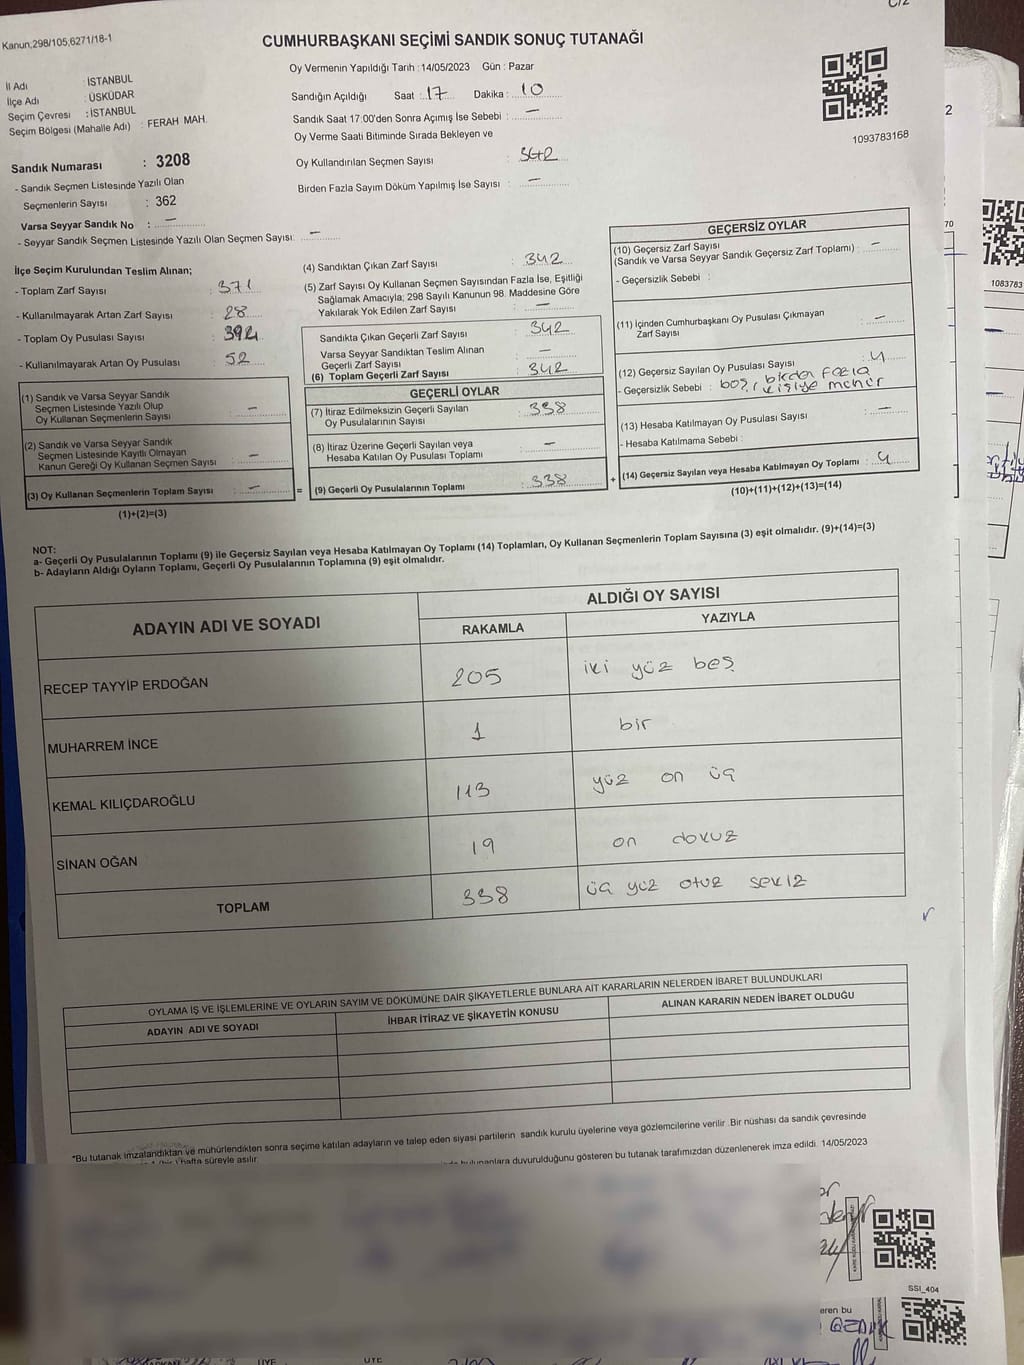 C/2
Kanun,298/105,6271/18-1
CUMHURBAŞKANI SEÇİMİ SANDIK SONUÇ TUTANAĞI
Oy Vermenin Yapıldığı Tarih : 14/05/2023 Gün : Pazar
İl Adı : İSTANBUL
İlçe Adı : ÜSKÜDAR
Seçim Çevresi : İSTANBUL
Seçim Bölgesi (Mahalle Adı) : FERAH MAH.
Sandığın Açıldığı Saat : 17 Dakika : 10
Sandık Saat 17:00'den Sonra Açımış İse Sebebi : —
Oy Verme Saati Bitiminde Sırada Bekleyen ve
Oy Kullandırılan Seçmen Sayısı : 342
Birden Fazla Sayım Döküm Yapılmış İse Sayısı : —
1093783168
Sandık Numarası : 3208
- Sandık Seçmen Listesinde Yazılı Olan
Seçmenlerin Sayısı : 362
Varsa Seyyar Sandık No : —
- Seyyar Sandık Seçmen Listesinde Yazılı Olan Seçmen Sayısı: —
İlçe Seçim Kurulundan Teslim Alınan;
- Toplam Zarf Sayısı : 371
- Kullanılmayarak Artan Zarf Sayısı : 28
- Toplam Oy Pusulası Sayısı : 394
- Kullanılmayarak Artan Oy Pusulası : 52
(1) Sandık ve Varsa Seyyar Sandık
Seçmen Listesinde Yazılı Olup
Oy Kullanan Seçmenlerin Sayısı : —
(2) Sandık ve Varsa Seyyar Sandık
Seçmen Listesinde Kayıtlı Olmayan
Kanun Gereği Oy Kullanan Seçmen Sayısı : —
(3) Oy Kullanan Seçmenlerin Toplam Sayısı : —
(1)+(2)=(3)
(4) Sandıktan Çıkan Zarf Sayısı : 342
(5) Zarf Sayısı Oy Kullanan Seçmen Sayısından Fazla İse, Eşitliği
Sağlamak Amacıyla; 298 Sayılı Kanunun 98. Maddesine Göre
Yakılarak Yok Edilen Zarf Sayısı : —
Sandıkta Çıkan Geçerli Zarf Sayısı : 342
Varsa Seyyar Sandıktan Teslim Alınan
Geçerli Zarf Sayısı : —
(6) Toplam Geçerli Zarf Sayısı : 342
GEÇERLİ OYLAR
(7) İtiraz Edilmeksizin Geçerli Sayılan
Oy Pusulalarının Sayısı : 338
(8) İtiraz Üzerine Geçerli Sayılan veya
Hesaba Katılan Oy Pusulası Toplamı : —
= (9) Geçerli Oy Pusulalarının Toplamı : 338 +
GEÇERSİZ OYLAR
(10) Geçersiz Zarf Sayısı
(Sandık ve Varsa Seyyar Sandık Geçersiz Zarf Toplamı) : —
- Geçersizlik Sebebi :
(11) İçinden Cumhurbaşkanı Oy Pusulası Çıkmayan
Zarf Sayısı : —
(12) Geçersiz Sayılan Oy Pusulası Sayısı : 4
- Geçersizlik Sebebi : boş, birden fazla
kişiye mühür
(13) Hesaba Katılmayan Oy Pusulası Sayısı : —
- Hesaba Katılmama Sebebi :
(14) Geçersiz Sayılan veya Hesaba Katılmayan Oy Toplamı : 4
(10)+(11)+(12)+(13)=(14)
NOT:
a- Geçerli Oy Pusulalarının Toplamı (9) ile Geçersiz Sayılan veya Hesaba Katılmayan Oy Toplamı (14) Toplamları, Oy Kullanan Seçmenlerin Toplam Sayısına (3) eşit olmalıdır. (9)+(14)=(3)
b- Adayların Aldığı Oyların Toplamı, Geçerli Oy Pusulalarının Toplamına (9) eşit olmalıdır.
ADAYIN ADI VE SOYADI
ALDIĞI OY SAYISI
RAKAMLA YAZIYLA
RECEP TAYYİP ERDOĞAN 205 iki yüz beş
MUHARREM İNCE 1 bir
KEMAL KILIÇDAROĞLU 113 yüz on üç
SİNAN OĞAN 19 on dokuz
TOPLAM 338 üç yüz otuz sekiz
OYLAMA İŞ VE İŞLEMLERİNE VE OYLARIN SAYIM VE DÖKÜMÜNE DAİR ŞİKAYETLERLE BUNLARA AİT KARARLARIN NELERDEN İBARET BULUNDUKLARI
ADAYIN ADI VE SOYADI İHBAR İTİRAZ VE ŞİKAYETİN KONUSU ALINAN KARARIN NEDEN İBARET OLDUĞU
*Bu tutanak imzalandıktan ve mühürlendikten sonra seçime katılan adayların ve talep eden siyasi partilerin sandık kurulu üyelerine veya gözlemcilerine verilir. Bir nüshası da sandık çevresinde
hafta süreyle asılır.
bulunanlara duyurulduğunu gösteren bu tutanak tarafımızdan düzenlenerek imza edildi. 14/05/2023
SSI_404
eren bu
ÜYE
ÜYE
2
70
1083783